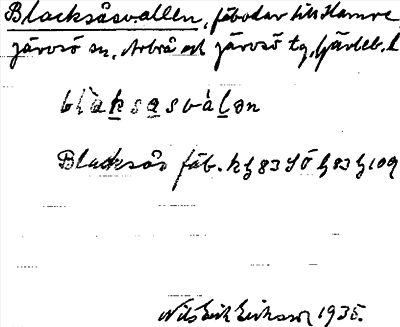 Blacksåsvallen, fäbodar till Hamre
järvsö sn, Arbrå och järvsö tg, Gävleb. l
blaksasvalen
Blacksås fäb. k g 83 SÖ g 83 g 109
Nils Erik Eriksson 1935.